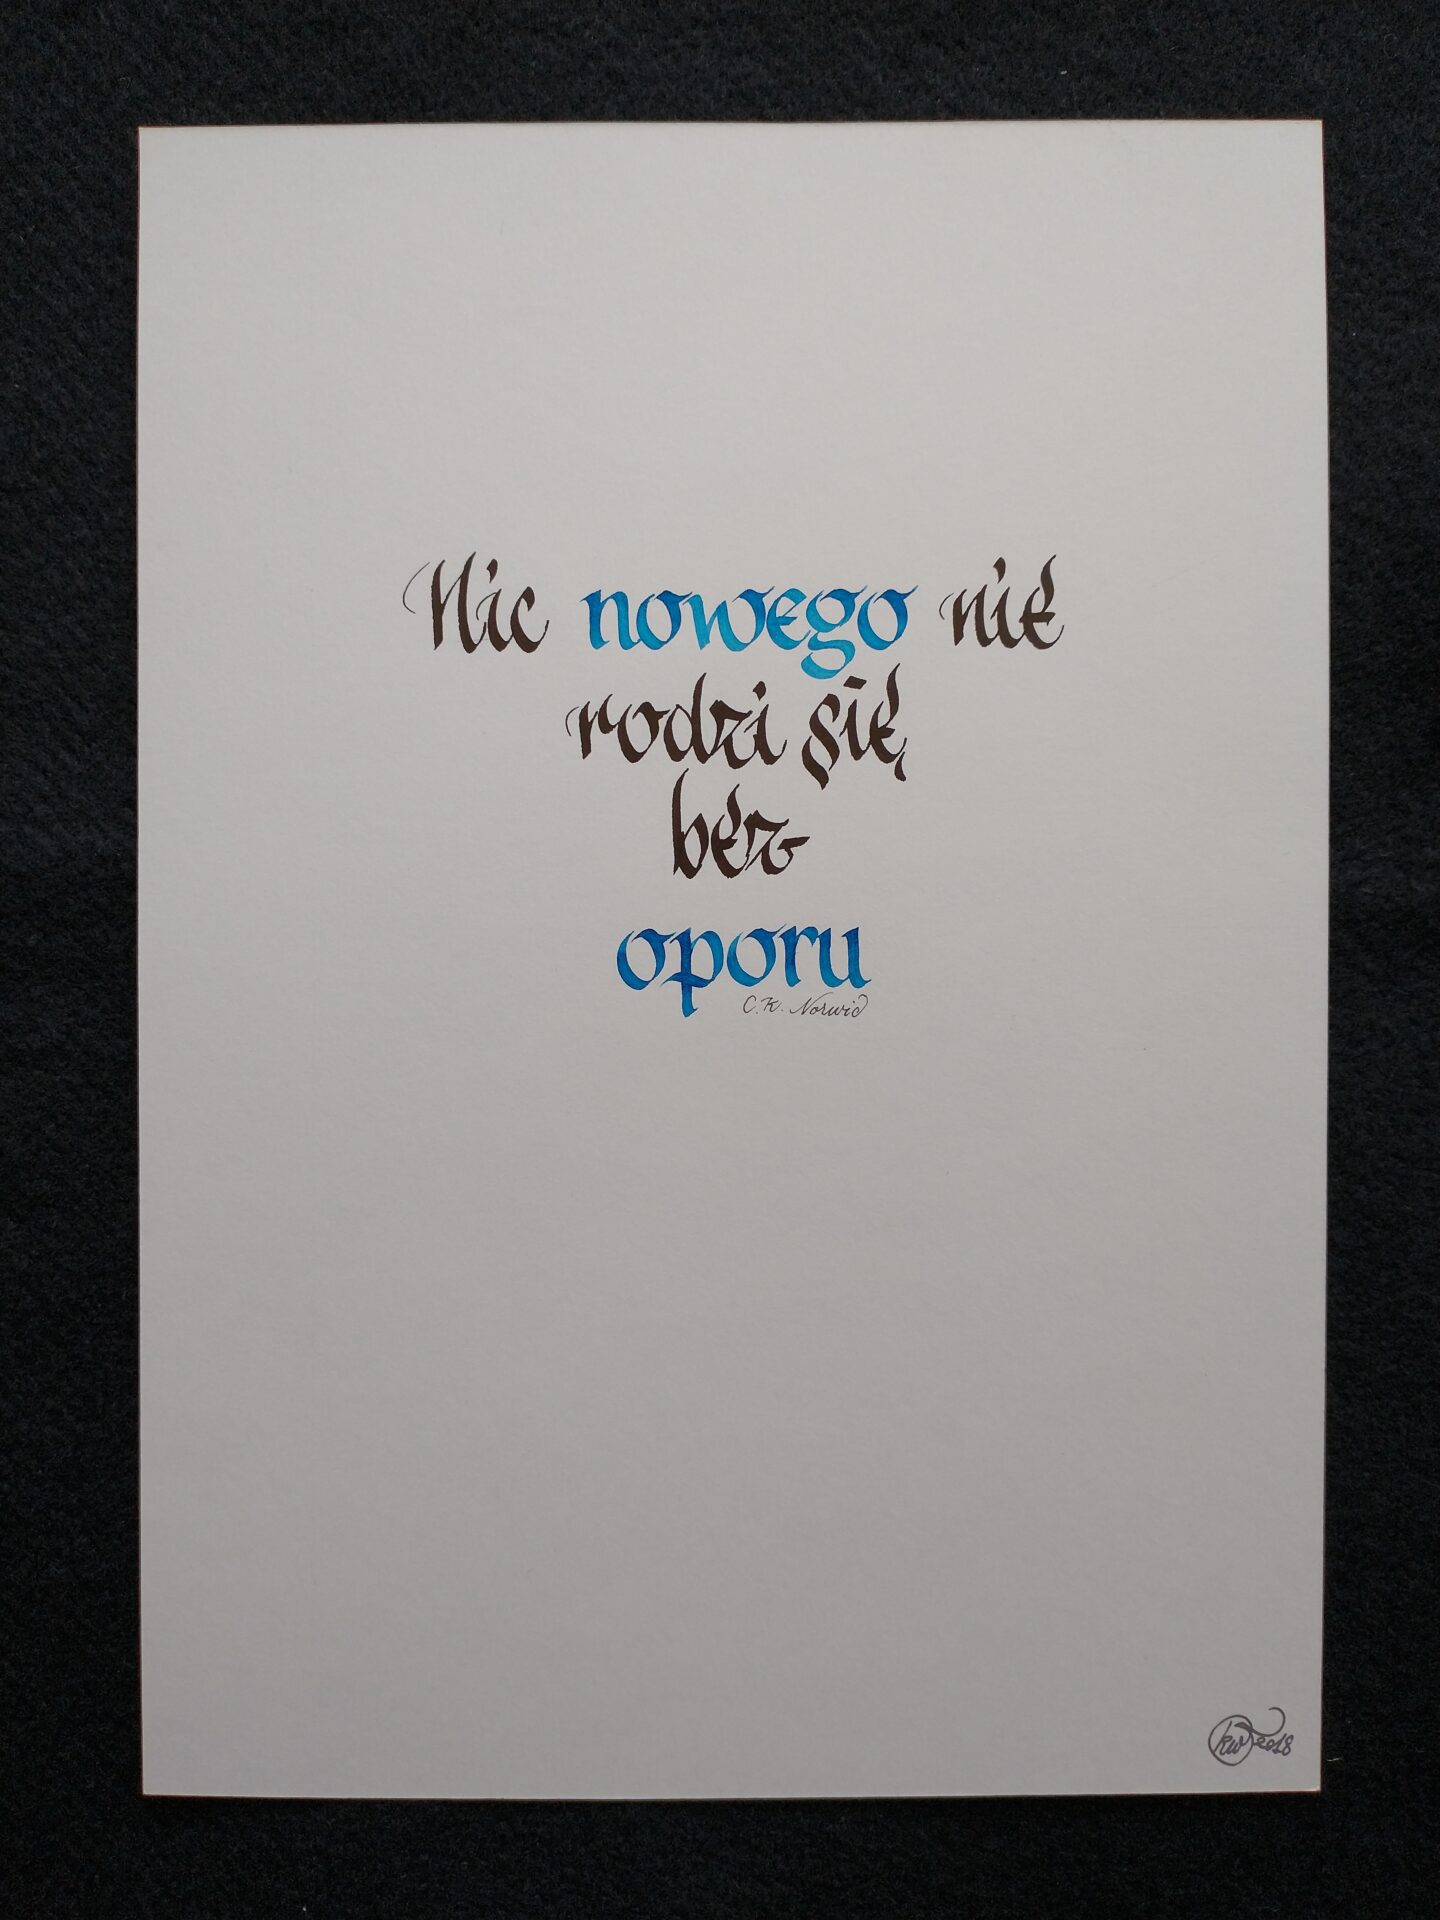 Nic nowego nie
rodzi się
bez
oporu
C.K. Norwid
kw 2018